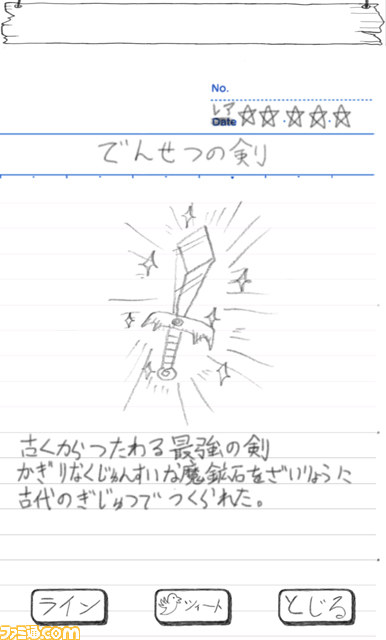 No.
レア
Date ☆☆☆☆☆
でんせつの剣
古くからつたわる最強の剣
かぎりなくじゅんすいな魔鉱石をざいりょうに
古代のぎじゅつでつくられた。
ライン ツイート とじる
ファミ通.com